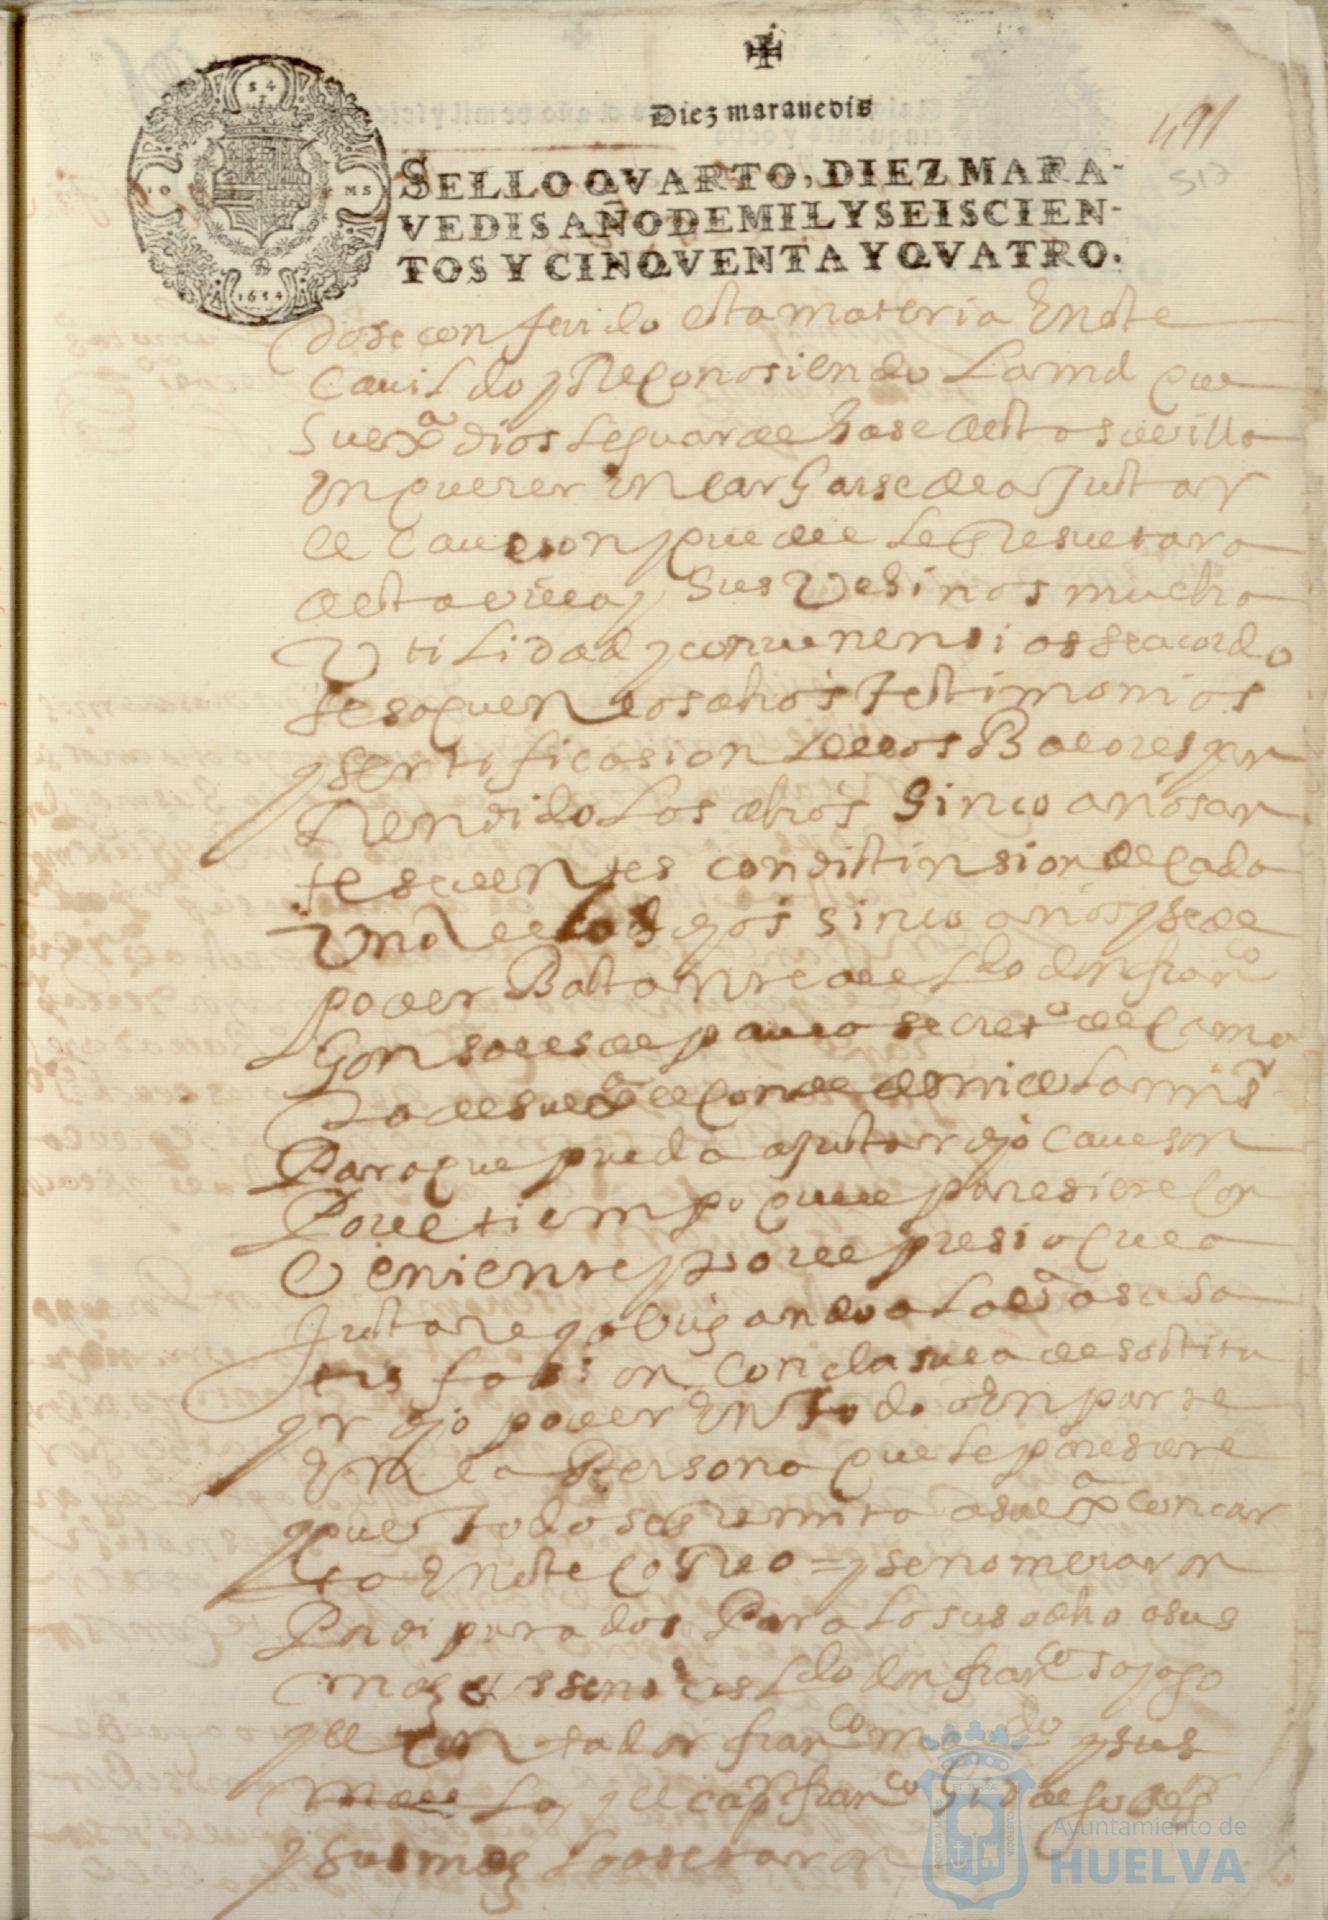 Diez maravedis
491
517
SELLO QVARTO, DIEZ MARA-
VEDIS AÑO DE MIL Y SEISCIEN-
TOS Y CINQVENTA Y QVATRO.
54
10 MS
1654
dose conferido esta materia En este
Cavildo y Reconosiendo La md que
Su exa dios le guarde hase a esta su villa
En querer Encargarse de a Justar
el Caveson y que de ello Resultara
a esta villa y Sus Vesinos mucha
Utilidad y conveniensias se acordo
se saquen los dhos Testimonios
y Sertificasion de los Balores que an
Rendido Los dhos Sinco años an
tesedentes con distinsion de Cada
Uno de los dhos sinco años y se de
poder Bastante al Ldo don franco
Gonsales de secreto de Cama
ra de su exa el Conde de
Para que pueda ajustar dho Caveson
Por el tiempo que le paresiere Con
Veniente y por el presio que a
Justare y obligando a La a su sa
tisfasion Con clasula de sostitu
yr dho poder En todo o En parte
En la Persona que le paresiere
y que todo se Remita a su exa con car
ta En este CoReo = y se nomeraron
Por diputados Para Lo susodho a sus
mds Ldo don franco
y el Contador franco y sus
mds La y el capn franco
y Sus mds Lo asetaron
Ayuntamiento de
HUELVA